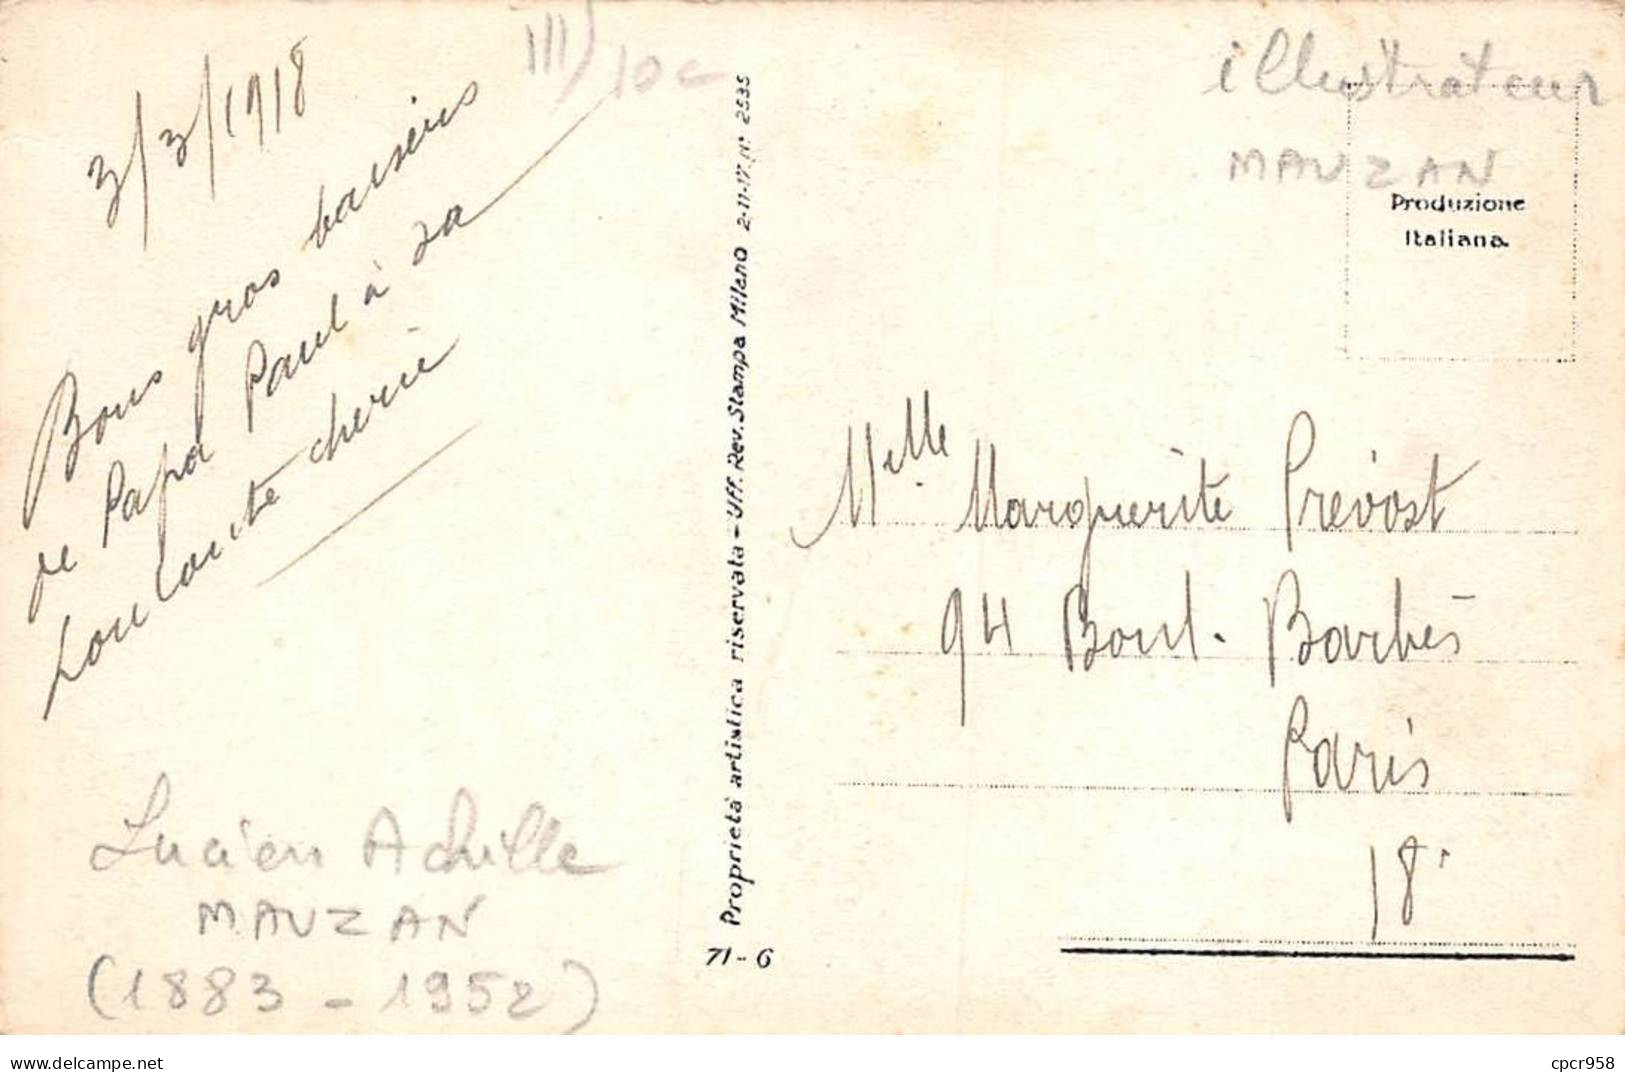 III/10c
3/3/1918
Bons gros baisers
de Papa Paul à sa
Louloute cherie
Lucien Achille
MAUZAN
(1883 - 1952)
Proprietà artistica riservata - Uff. Rev. Stampa Milano 2-11-17. N° 2535
71-6
illustrateur
MAUZAN
Produzione
Italiana.
Melle Marguerite Prévost
94 Boul. Barbès
Paris
18e
delcampe.net
cpcr958